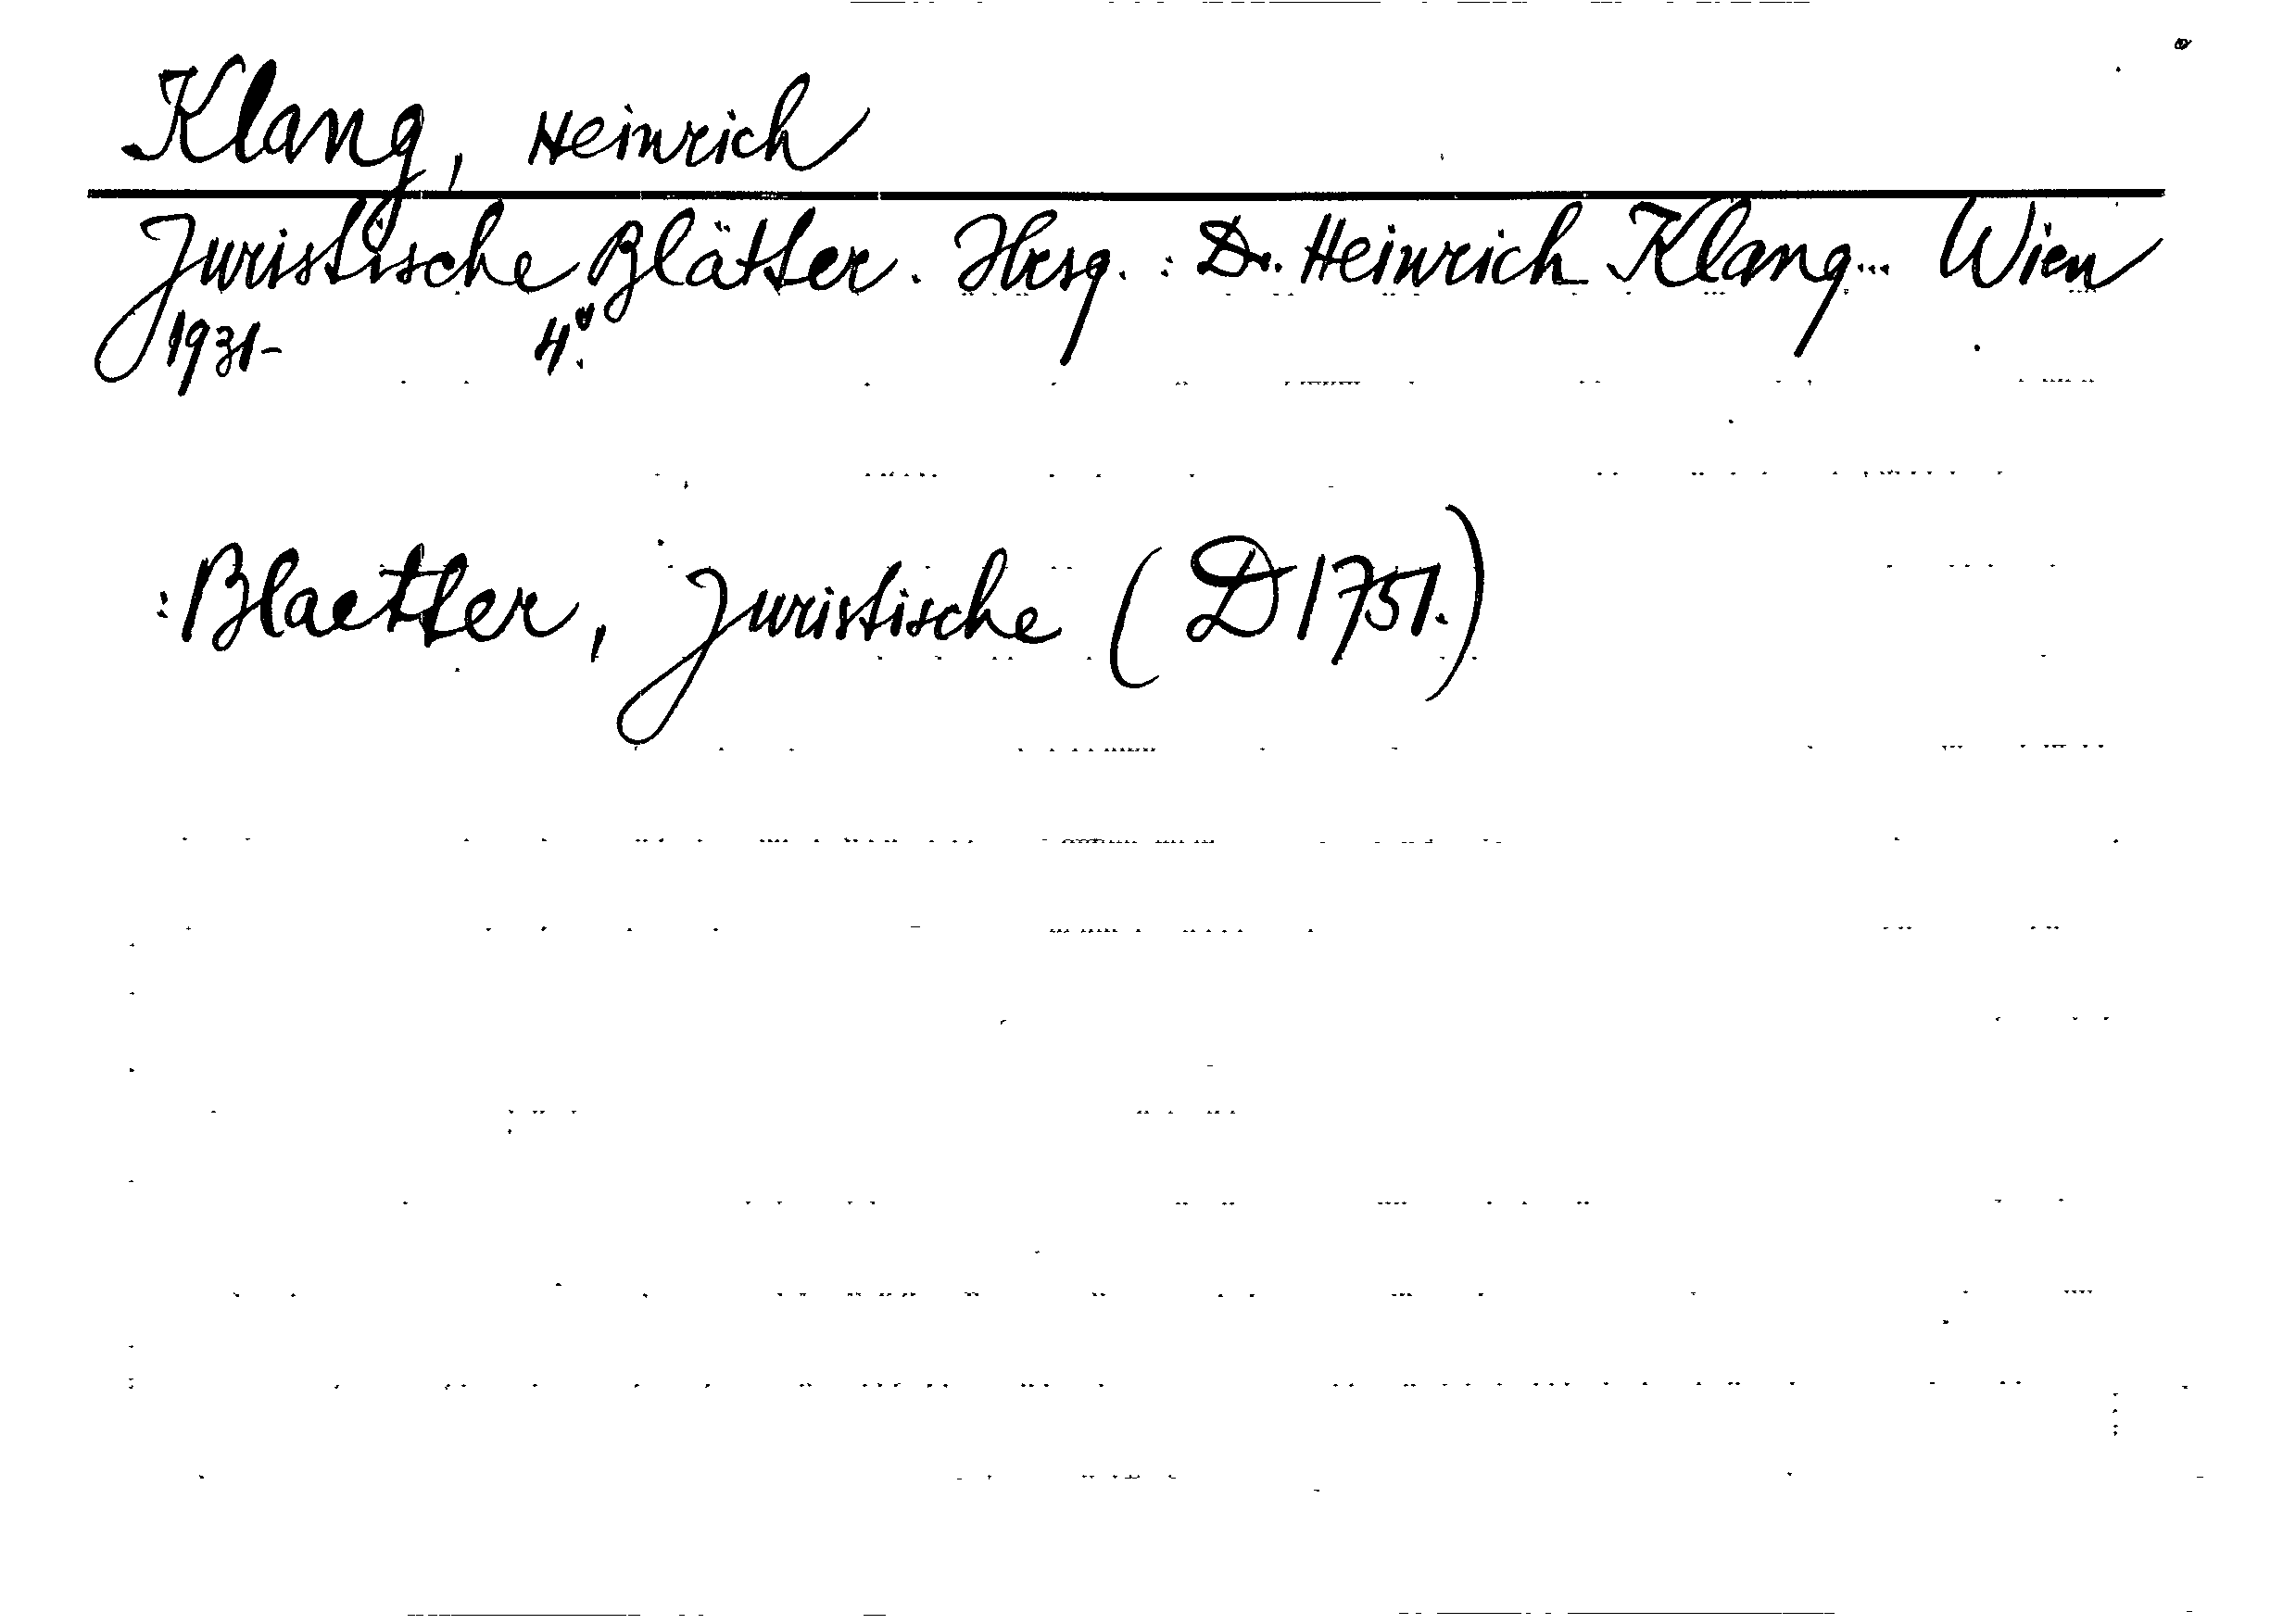 Klang, Heinrich
Juristische Blätter. Hrsg.: Dr. Heinrich Klang... Wien
1931- 4°.
:Blaetter, Juristische (D1751.)